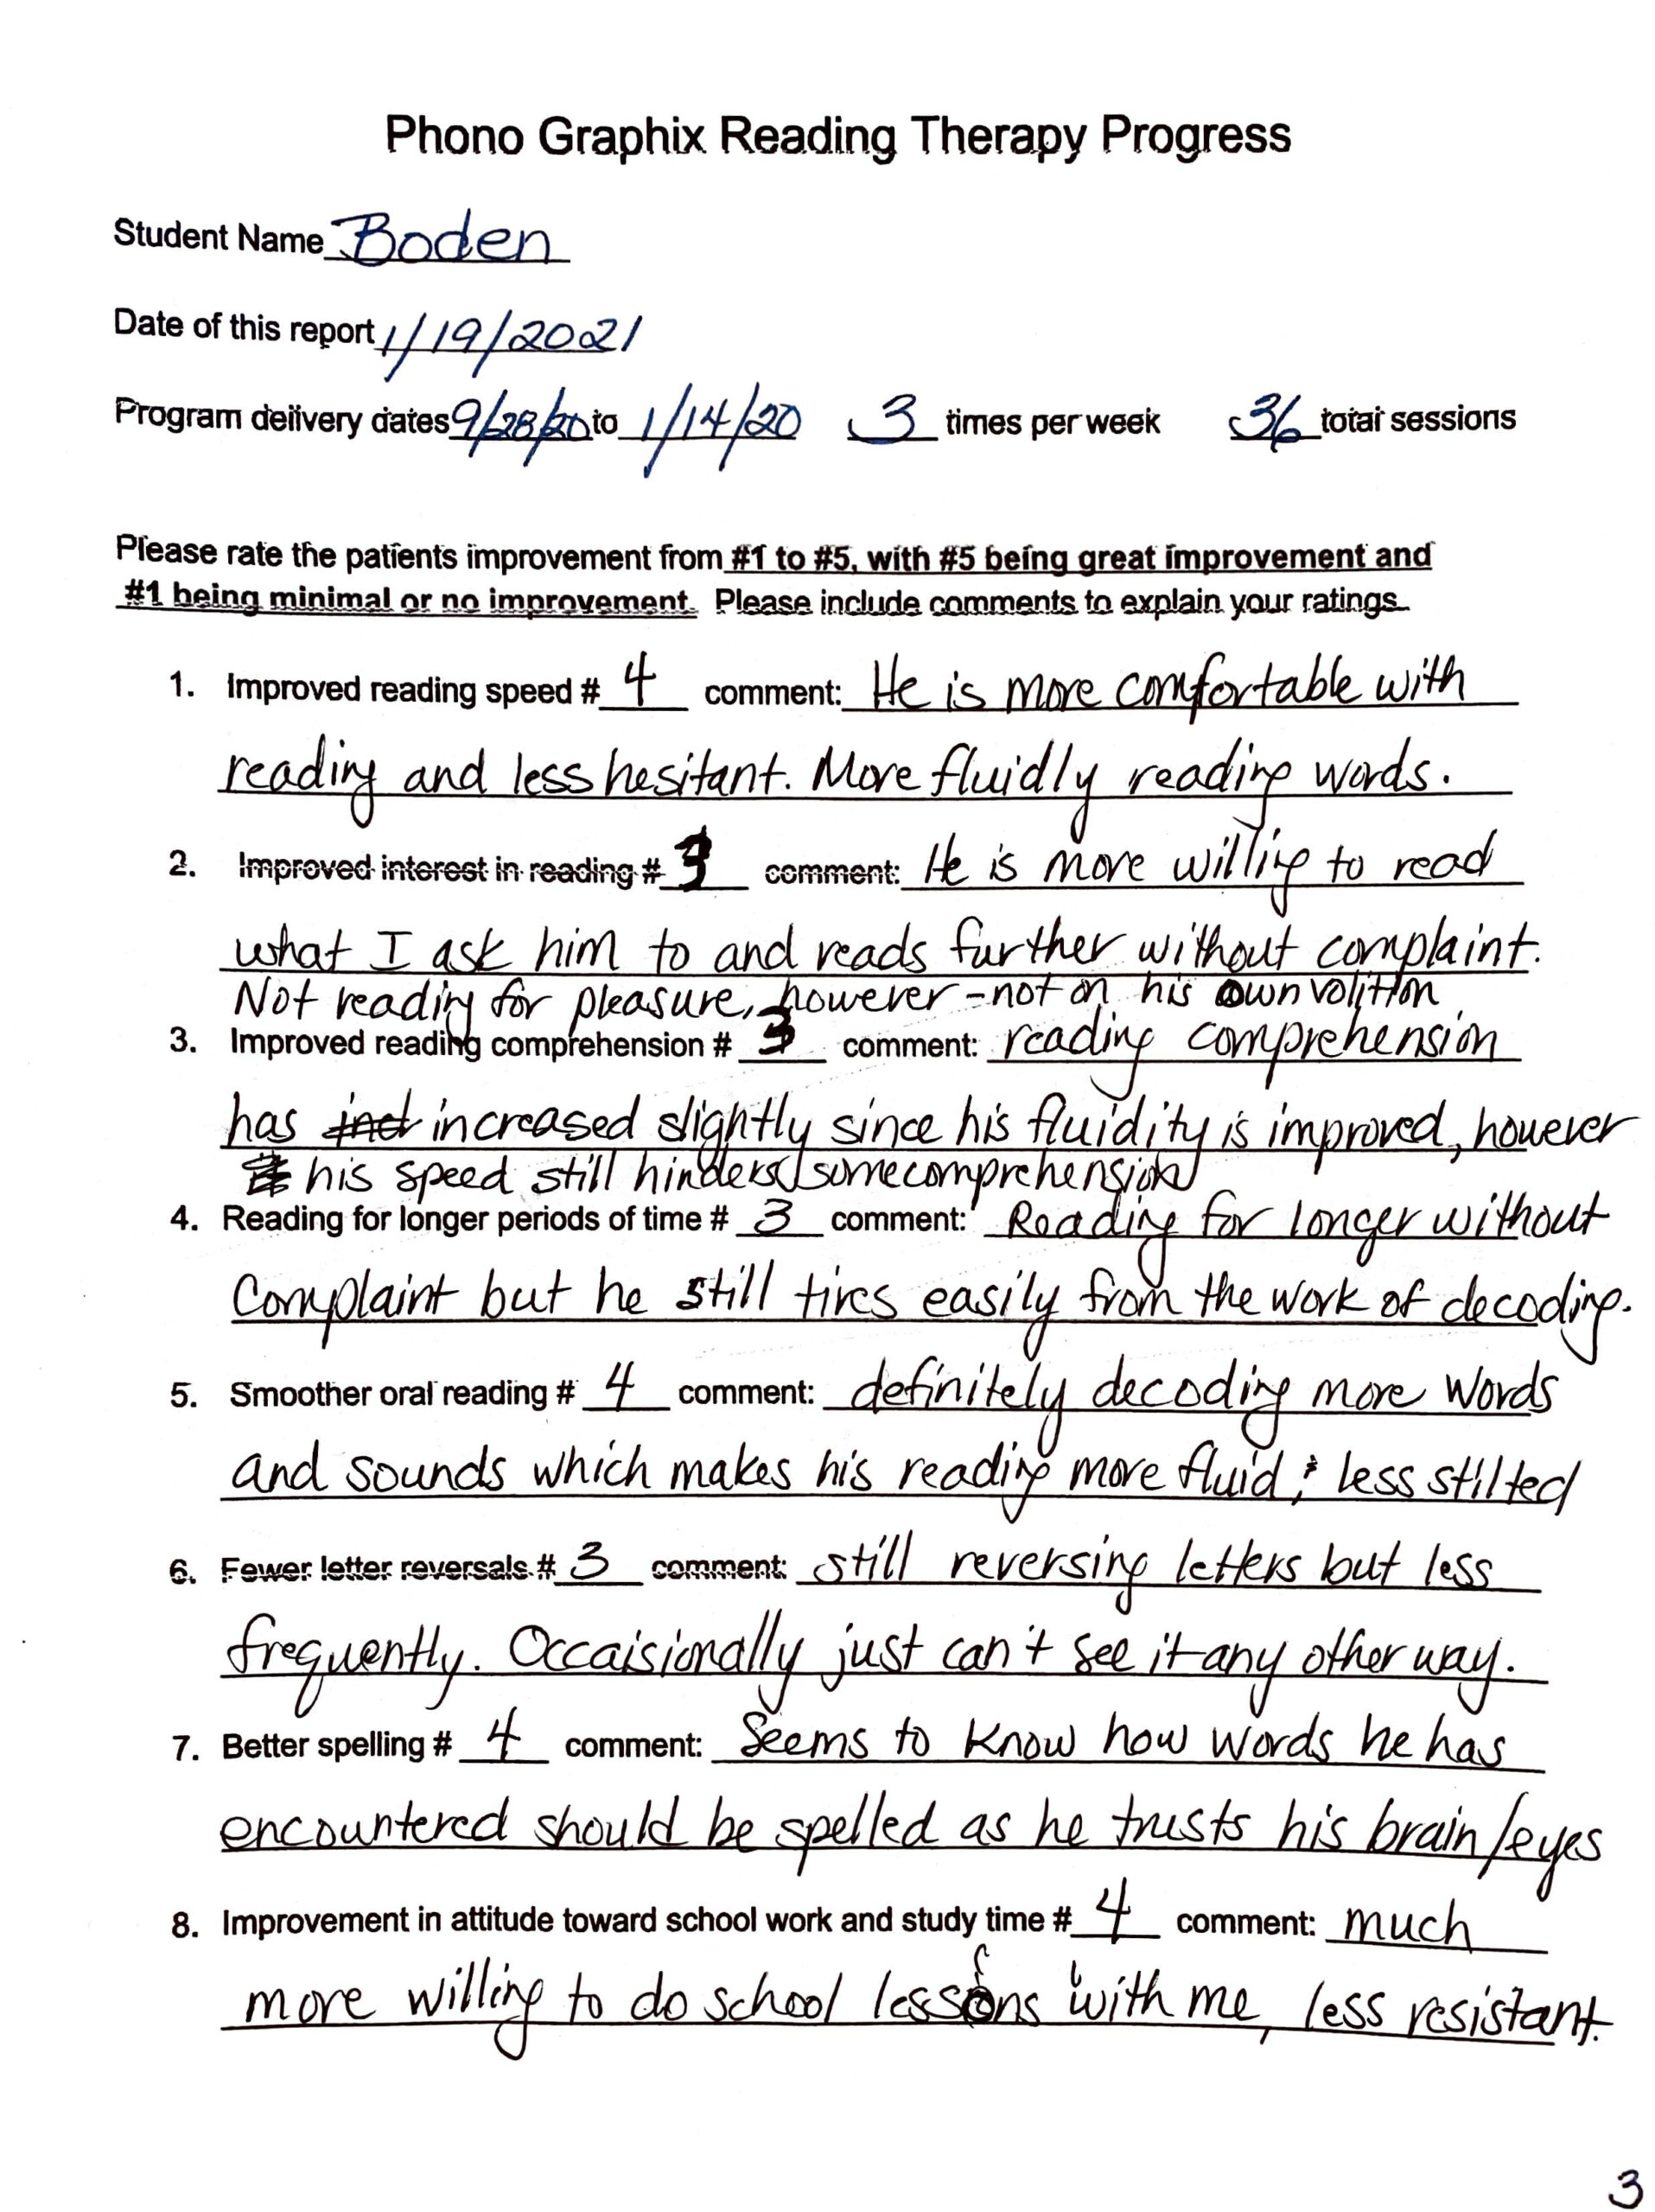 Phono Graphix Reading Therapy Progress
Student Name Boden
Date of this report 1/19/2021
Program delivery dates 9/28/20 to 1/14/20 3 times per week 36 total sessions
Please rate the patients improvement from #1 to #5, with #5 being great improvement and
#1 being minimal or no improvement. Please include comments to explain your ratings.
1. Improved reading speed # 4 comment: He is more comfortable with
reading and less hesitant. More fluidly reading words.
2. Improved interest in reading # 3 comment: He is more willing to read
what I ask him to and reads further without complaint.
Not reading for pleasure, however - not on his own volition
3. Improved reading comprehension # 3 comment: reading comprehension
has increased slightly since his fluidity is improved, however
his speed still hinders some comprehension
4. Reading for longer periods of time # 3 comment: Reading for longer without
Complaint but he still tires easily from the work of decoding.
5. Smoother oral reading # 4 comment: definitely decoding more words
and sounds which makes his reading more fluid & less stilted
6. Fewer letter reversals # 3 comment: still reversing letters but less
frequently. Occaisionally just can't see it any other way.
7. Better spelling # 4 comment: Seems to know how words he has
encountered should be spelled as he trusts his brain/eyes
8. Improvement in attitude toward school work and study time # 4 comment: much
more willing to do school lessons with me, less resistant.
3